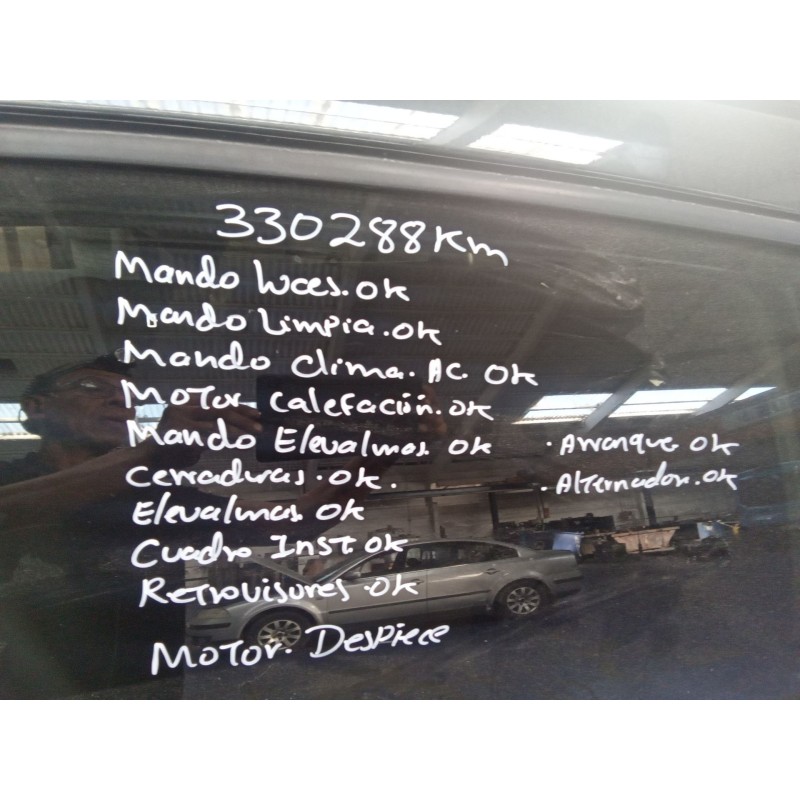 330288Km
Mando luces. OK
Mando Limpia. OK
Mando Clima. AC. OK
Motor Calefación. OK
Mando Elevalunas. OK
Cerraduras. OK.
Elevalunas. OK
Cuadro Inst OK
Retrovisores. OK
Motor. Despiece
. Arranque OK
. Alternador. OK